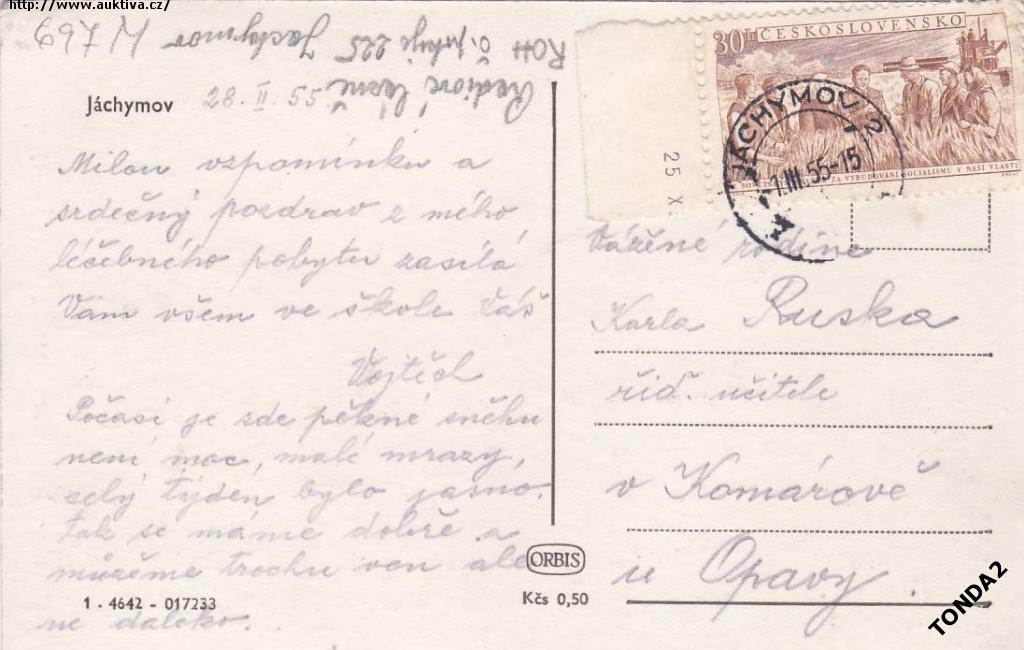 http://www.auktiva.cz/
Jáchymov 28. II. 55
Milou vzpomínku a
srdečný pozdrav z mého
léčebného pobytu zasílá
Vám všem ve škole Váš
Vojtěch
Počasí je zde pěkné sněhu
není moc, malé mrazy,
celý týden bylo jasno.
Tak se máme dobře a
můžeme trochu ven ale
ne daleko.
1 - 4642 - 017233
ROH č. pokoje 225 Jáchymov
ORBIS
Kčs 0,50
30h ČESKOSLOVENSKO
ZA VYBUDOVÁNÍ SOCIALISMU V NAŠÍ VLASTI
JÁCHYMOV 2
1.III.55-15
25 X
Vážené rodině
Karla Ruska
říd. učitele
v Komárově
u Opavy.
TONDA2